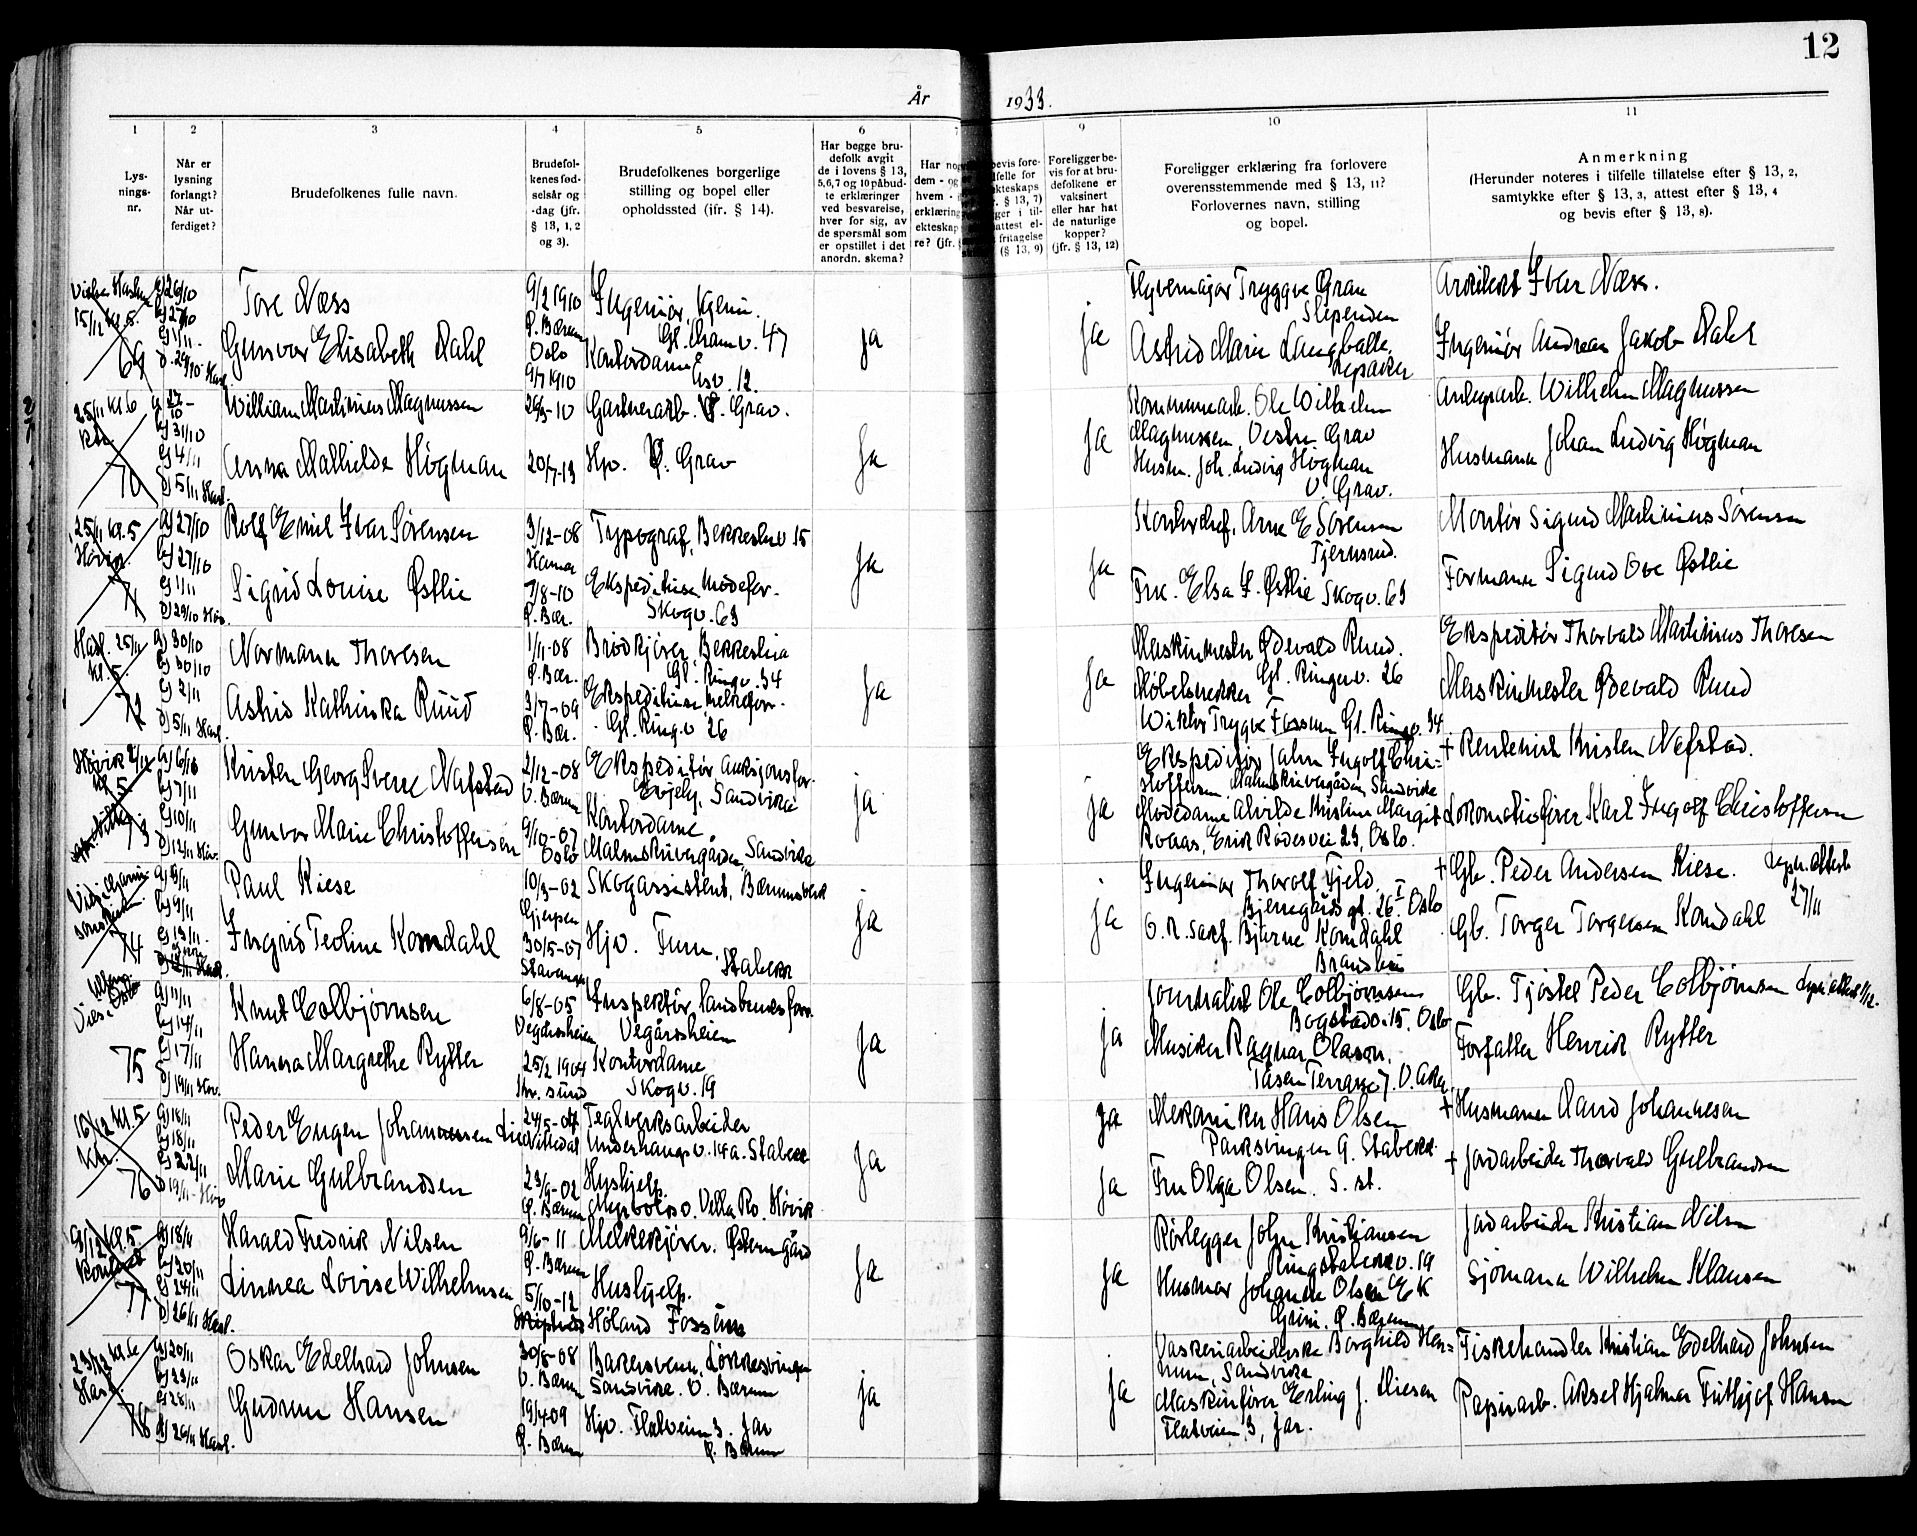 12
År
1933.
1
2
3
4
5
6
7
9
10
11
Lys-
nings-
nr.
Når er
lysning
forlangt?
Når ut-
ferdiget?
Brudefolkenes fulle navn.
Brudefol-
kenes fød-
selsår og
-dag (jfr.
§ 13, 1, 2
og 3).
Brudefolkenes borgerlige
stilling og bopel eller
opholdssted (jfr. § 14).
Har begge bru-
defolk avgit
de i lovens § 13,
5, 6, 7 og 10 påbud-
te erklæringer
ved besvarelse,
hver for sig, av
de spørsmål som
er opstillet i det
anordn. skema?
Har nog
dem - og
hvem -
erklæring
ekteskap
re? (jfr. §
bevis fore-
ilfelle for
ekteskaps
. § 13, 7)
ger i til-
attest el-
fritagelse
(§ 13, 9)
Foreligger be-
vis for at bru-
defolkene er
vaksinert
eller har hat
de naturlige
kopper?
(jfr. § 13, 12)
Foreligger erklæring fra forlovere
overensstemmende med § 13, 11?
Forlovernes navn, stilling
og bopel.
Anmerkning
(Herunder noteres i tilfelle tillatelse efter § 13, 2,
samtykke efter § 13, 3, attest efter § 13, 4
og bevis efter § 13, 8).
15/11 kl. 5.
69
a) 26/10
b) 27/10
c) 1/11
d. 29/10 Hasl.
Tore Næss
Gunvor Elisabeth Dahl
9/2 1910
Ø. Bærum
Oslo
9/7 1910
Ingeniør, Kjem.
Gl. Dramv. 47
Kontordame
12.
ja
ja
Flyvemajor Tryggve Gran
Slependen
Astrid Marie Langballe,
Arkitekt Ivar Næss.
Ingeniør Andreas Jakob Dahl
25/11 kl. 6
70
b) 31/10
c) 4/11
d) 5/11 Hasl.
William Martinius Magnussen
Anna Mathilde Høgman
20/7-13
Gartnerarb. Ø. Grav.
Hjv. Ø. Grav
Ja
Ja
Kommunearb. Ole Wilhelm
Magnussen, Grav
Husm. Joh. Ludvig Høgman
Ø. Grav.
Anlegsarb. Wilhelm Magnussen
Husmann Johan Ludvig Høgman
25/11 kl. 5
Høvik
71
a) 27/10
b) 27/10
c) 1/11
d) 29/10 Høv.
Rolf Emil Ivar Sørensen
Sigrid Louise Østlie
3/12-08
Hamar
7/8-10
Ø. Bær.
Typograf, Bekkeslnv 15
Ekspeditrise Modefor.
Skogv. 63
Ja
Ja
Kontorchef, Arne E Sørensen
Tjernsrud.
Frk. Elsa I. Østlie Skogv. 63
Montør Sigurd Martinius Sørensen
Formann Sigurd Ove Østlie
Hasl. 25/11
kl. 5.
72
a) 30/10
b) 30/10
c) 2/11
d) 5/11 Hasl.
Normann Thoresen
Astrid Kathinka Ruud
1/11-08
Ø. Bær.
3/7-09
Ø. Bær.
Brødkjører, Bekkeslia
Gl. Ringv. 34
Ekspeditrise, melkefor.
Gl. Ringv 26
Ja
Ja
Maskinmester Edevald Ruud.
Gl. Ringerv. 26
Møbelsnekker
Wiktor Trygve Fossum Gl. Ringv. 34
Ekspeditør Thorvald Martinius Thoresen
Maskinmester Edevald Ruud
Høvik 2/12
kl. 5
73
b) 7/11
c) 10/11
d) 12/11 Høv.
Kristen Georg Sverre Nafstad
Gunvor Marie Christoffersen
2/12-08
V. Bærum
9/10-07
Oslo
Ekspeditør, Auksjonsfor.
Evjely, Sandvika
Kontordame,
Malmskrivergården, Sandvika
ja
ja
Ekspeditør John Ingolf Chri-
stoffersen, Malmskrivergården, Sandvika
Modedame Alvilde Kristine Margit
Roaas, Erik Rødesvei 23, Oslo.
+ Rentenist Kristen Nafstad.
Lokomotivfører Karl Ingolf Christoffersen
74
a) 9/11
b) 9/11
c) 13/11.
Paul Kiese
Ingrid Teoline Komdahl
10/3-02
Gjerpen
30/5-07
Stavanger
Skogassistent, Bærumsverk
Hjv. Furu,
Stabekk
ja
ja
Ingeniør Thorolf Fjeld,
Bjerregårds gt. 26 I Oslo
O. R. Sakf. Bjarne Komdahl
+ Gb. Peder Andersen Kiese. Lysn. attest
27/11
Gb. Torger Torgersen Komdahl
Vies i Oslo
75
a) 11/11
b) 14/11
c) 17/11
d) 19/11 Høv.
Knut Colbjørnsen
Hanna Margrethe Rytter
6/8-05
Vegårsheien
25/2 1904
Kr. sund
Inspektør, landbunadsforr.
Vegårsheien
Kontordame
Skogv. 19
Ja
ja
Journalist Ole Colbjørnsen
Bogstadv. 15, Oslo
Musiker Ragnar Olason,
Tåsen Terrasse 7. V. Aker
Gb. Tjøstel Peder Colbjørnsen
Forfatter Henrik Rytter
16/12 kl. 5
76
a) 18/11
b) 18/11
c) 22/11
d) 19/11 - Høv
Peder Eugen Johannessen Lie
Marie Gulbrandsen
24/5-04
Nittedal
23/9-02
Ø. Bærum
Teglverksarbeider
Underhaugsv. 14a. Stabekk
Hushjelp.
Myrvoldsv. Villa Ro. Høvik
Ja
Ja
Ja
Mekaniker Hans Olsen
Parksvingen 9. Stabekk
Fru Olga Olsen. S. st.
+ Husmann Rand Johannesen
+ Jordarbeider Thorvald Gulbrandsen
9/12 kl. 5
77
a) 18/11
b) 20/11
c) 24/11
d) 26/11 Hasl.
Harald Fredrik Nilsen
Linnea Lovise Wilhelmsen
9/6-11
Ø. Bærum
5/10-12
Melkekjører. Østern gård
Hushjelp.
Høland Fossum
Ja
Ja
Rørlegger John Kristiansen
Ringstabekkv. 19
Husmor Johanne Olsen E K
Grini. Ø. Bærum
Jordarbeider Kristian Nilsen
Sjømann Wilhelm Klausen
23/12 kl. 6
Hasl.
78
a) 20/11
b) 23/11
c) 28/11
d) 26/11 Hasl.
Oskar Edelhard Johnsen
Gudrun Hansen
30/8-08
V. Bærum
19/4-09
Ø. Bærum
Bakersvenn, Løkkesvingen
Sandvika. V. Bærum
Hjv. Flatveien 3. Jar
Ø. Bærum
ja
Ja
Vaskeriarbeiderske Borghild Hen-
Sandvika
Maskinfører Erling J. Diesen
Flatveien 3, Jar.
Fiskehandler Kristian Edelhard Johnsen
Papirarb. Aksel Hjalmar Fritjof Hansen